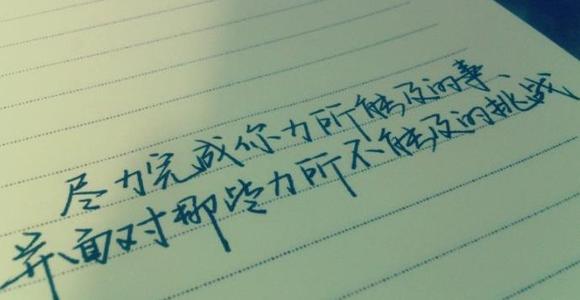 尽力完成你力所能及的事、
并面对那些力所不能及的挑战